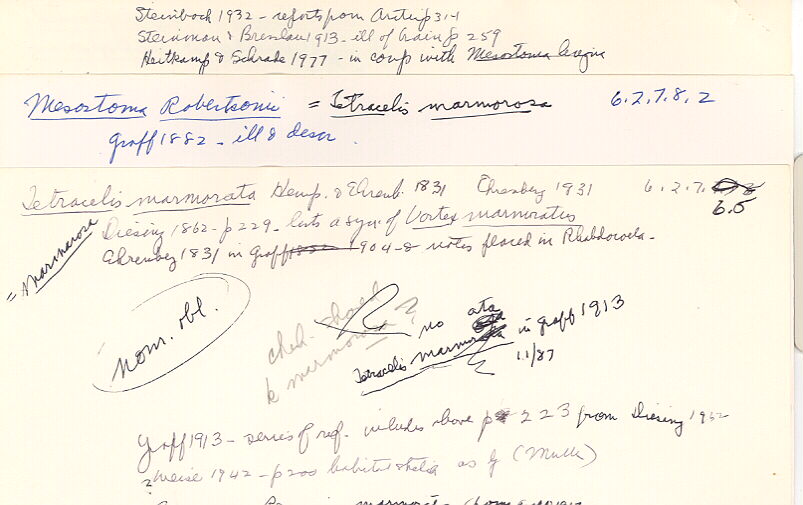 Steinbock 1932 - reports from Arctic p 314
Steinman & Breslau 1913 - ill of brain p 259
Heitkamp & Schrade 1977 - in comp with Mesostoma lingua
Mesostoma Robertsonii = Tetracelis marmorosa 6.2.7.8.2
Graff 1882 - ill & descr.
Tetracelis marmorata Hemp. & Ehrenb. 1831 Ehrenberg 1931 6.2.7.
6.5
= marmorosa
Diesing 1862 - p 229 - lists as syn. of Vortex marmoratus
Ehrenberg 1831 in Graff 1904-8 notes placed in Rhabdocoela -
nom. obl.
check should
be marmorosa ?
no ata
Tetracelis marmorata in Graff 1913
11/87
Graff 1913 - series of ref. includes above p 223 from Diesing 1962
? Meise 1942 - p 200 as of (Mull)
marmorata